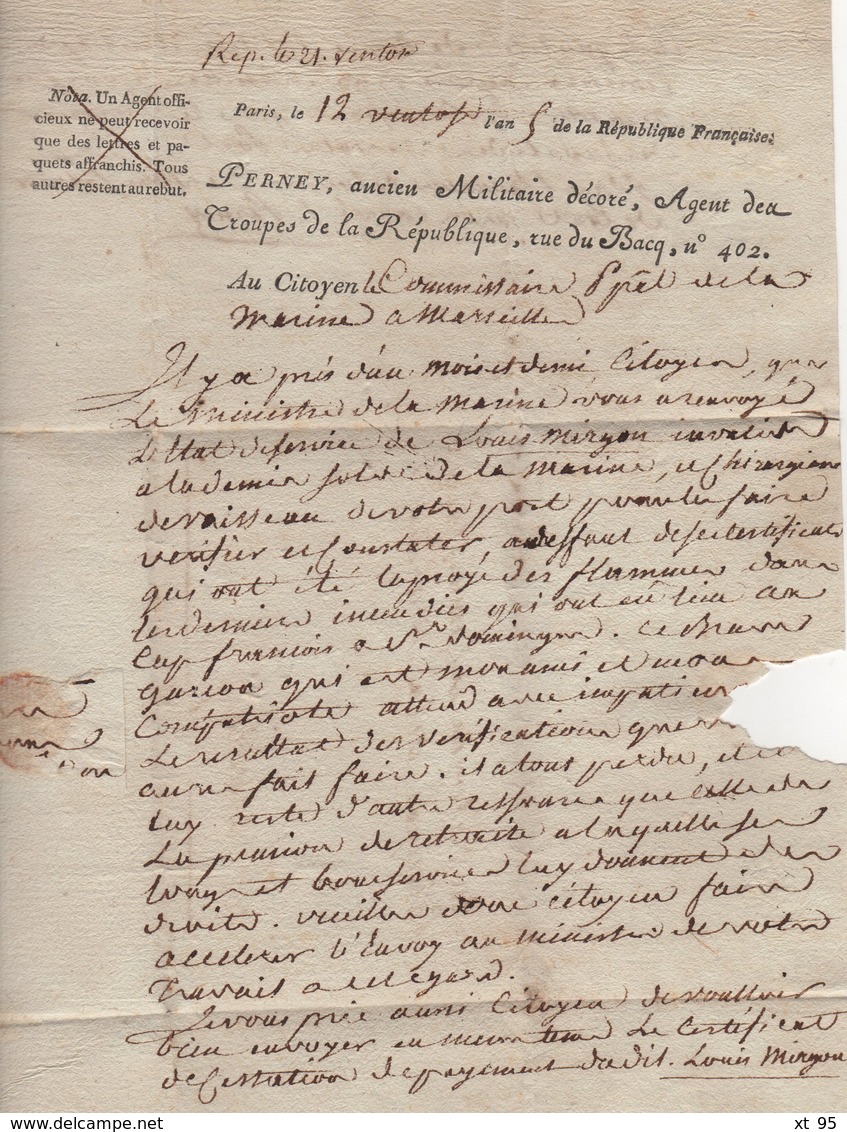 Rep. le 21. ventose
Nota. Un Agent offi-
cieux ne peut recevoir
que des lettres et pa-
quets affranchis. Tous
autres restent au rebut.
Paris, le 12 ventose l'an 5 de la République Française.
PERNEY, ancien Militaire décoré, Agent des
Troupes de la République, rue du Bacq, n° 402.
Au Citoyen le Commissaire Ppal de la
marine a Marseille
Il y a près d'un mois et demi Citoyen, que
Le ministre de la marine vous a renvoyé
L'Etat de service de Louis Miryon invalide
a la demie solde de la marine, et chirurgien
de vaisseau de votre port pour les faire
verifier et constater, au deffaut de ses certificats
qui ont été la proye des flammes dans
les derniers incendies qui ont eu lieu au
Cap francois a St. Domingue. Ce Brave
garcon qui est mon ami et mon
Compatriote attend avec impatien
Le resultat des verifications que
aures fait faire. il a tous perdu, et
luy reste d'autre ressource que celle de
La pension de retraite a laquelle ses
longs et bons services luy donnent des
droits. veuillés donc citoyen faire
accelerer l'Envoy au ministre de votre
Travail a cet egard.
Je vous prie aussi Citoyen de voulloir
bien envoyer en meme tems Le Certificat
de Cessation de payement du dit. Louis Miryon
xt 95